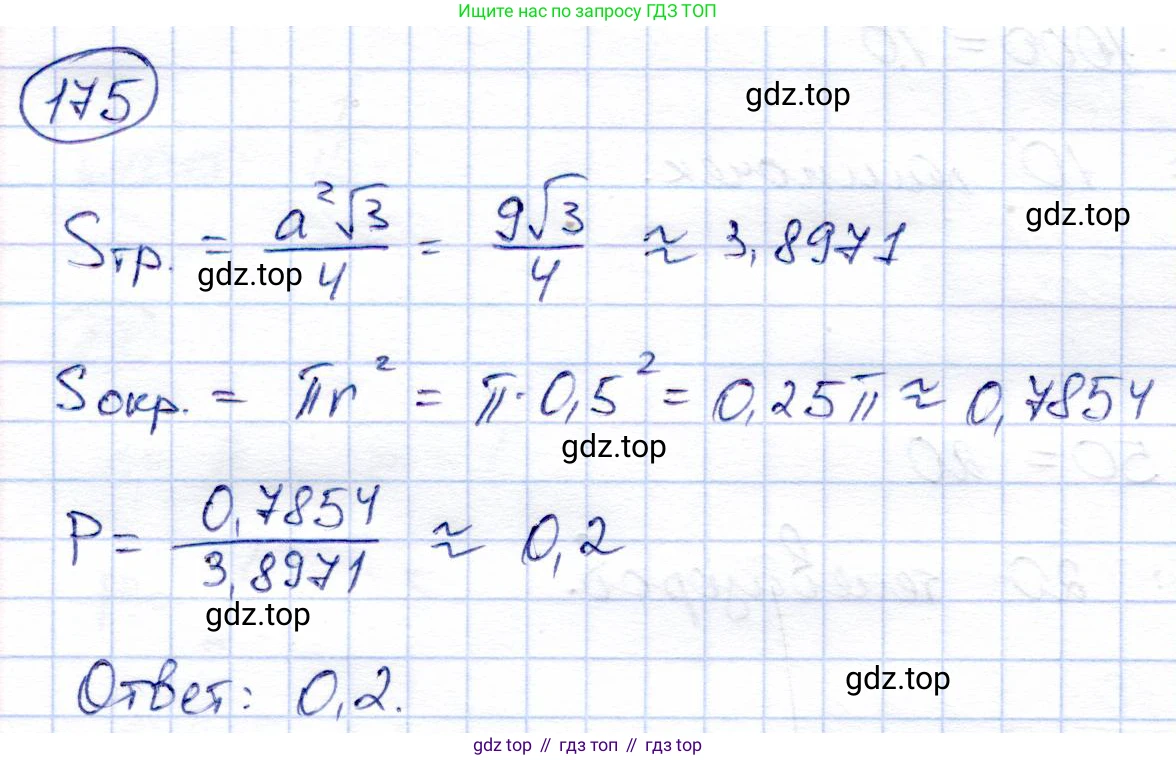 Ищите нас по запросу ГДЗ ТОП
175
gdz.top
Sтр. = a²√3/4 = 9√3/4 ≈ 3,8971
gdz.top
gdz.top
Sокр. = πr² = π·0,5² = 0,25π ≈ 0,7854
gdz.top
P = 0,7854/3,8971 ≈ 0,2
gdz.top
Ответ: 0,2.
gdz.top
gdz top // гдз топ // gdz top